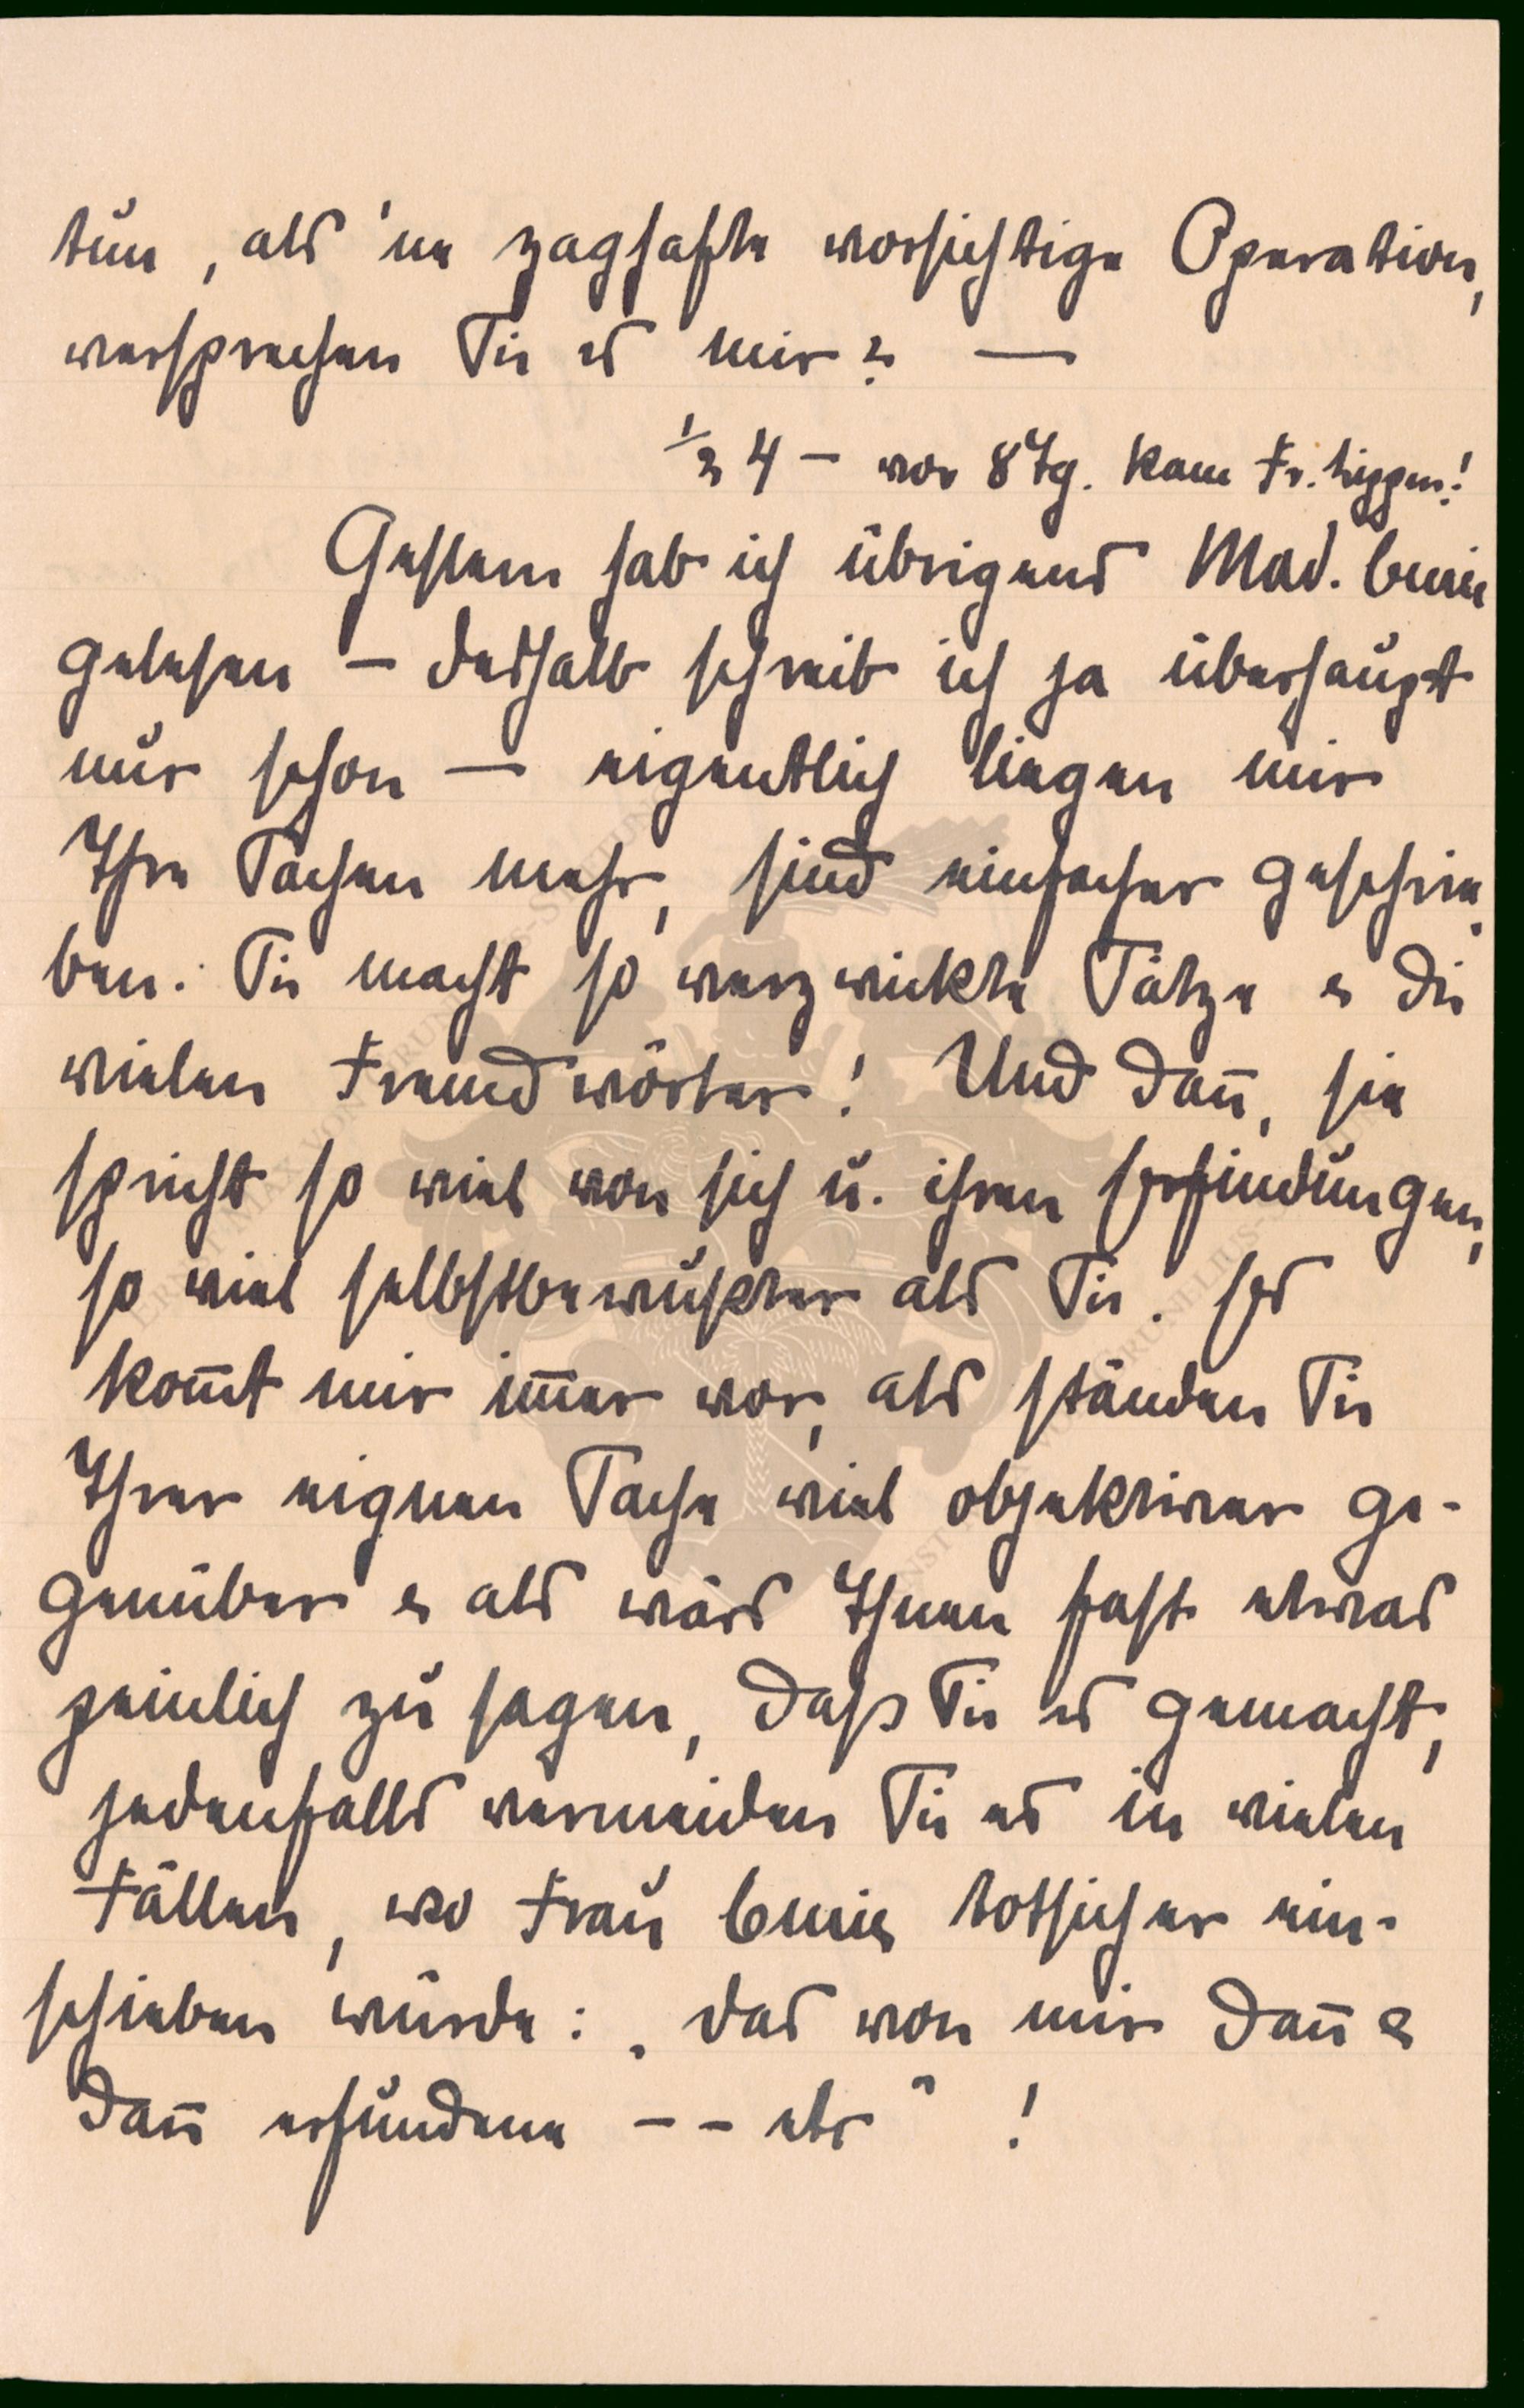 tun, als 'ne zaghafte vorsichtige Operation,
versprechen Sie es mir? —
1/2 4 — vor 8 Tg. kam Fr. Lippen!
Gestern hab ich übrigens Mad. Curie
gelesen — deshalb schreib ich ja überhaupt
nur schon — eigentlich liegen mir
Ihre Sachen mehr, sind einfacher geschrie-
ben. Sie macht so verzwickte Sätze & die
vielen Fremdwörter! Und dañ, sie
spricht so viel von sich u. ihren Erfindungen,
so viel selbstbewußter als Sie. Es
kom̄t mir im̄er vor, als ständen Sie
Ihrer eignen Sache viel objektiver ge-
genüber & als wärs Ihnen fast etwas
peinlich zu sagen, daß Sie es gemacht,
jedenfalls vermeiden Sie es in vielen
Fällen, wo Frau Curie totsicher ein-
schieben würde: „das von mir dañ &
dañ erfundene -- etc" !